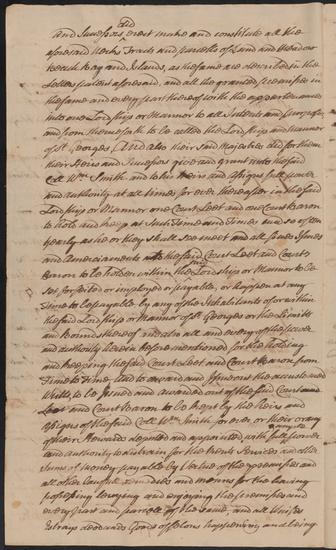 did
and Successors erect make and constitute all the
aforesaid Necks Tracts and parcells of Land and Meadow
Beach Bay and Islands, as the same are described in the
Letters patent aforesaid, and all the granted premises in
the same and every part thereof with the appurtenances
into one Lordship or Mannor to all Intents and purposes
and from thenceforth to be called the Lordship and Mannor
of St. Georges And also their said Majesties did for them
their Heirs and Successors give and grant unto the said
Coll Wm. Smith and to his heirs and assigns full power
and authority at all times for ever thereafter in the said
Lordship or Mannor one Court Leet and one Court Baron
to hold and keep at such Time and Times and so often
yearly as he or they shall see meet and all fines Issues
and Amerciaments at the said Court Leet and Court
Baron to be holden within the said Lordship or Mannor to be
set forfeited or imployed or payable, or happen at any
Time to be payable by any of the Inhabitants of or within
the said Lordship or Mannor of St Georges or the Limitts
and Bounds thereof and also all and every of the power
and authority herein before mentioned for the holding
and keeping the said Court Leet and Court Baron from
Time to Time and to award and Issue out the accustomed
Writts, to be Issued and awarded out of the said Court
Leet and Court Baron to be kept by the Heirs and
assigns of the said Coll Wm. Smith for ever or their or any
of their Stewards deputed and appointed with full power
and authority to distrain for the Rents Services and other
Sums of money payable by Virtue of the premises and
all other Lawful remedies and means for the having
possessing levying and enjoying the premises and
every part and parcell of the same, and all Waifes
Estrays deodands Goods of Felons happening and being